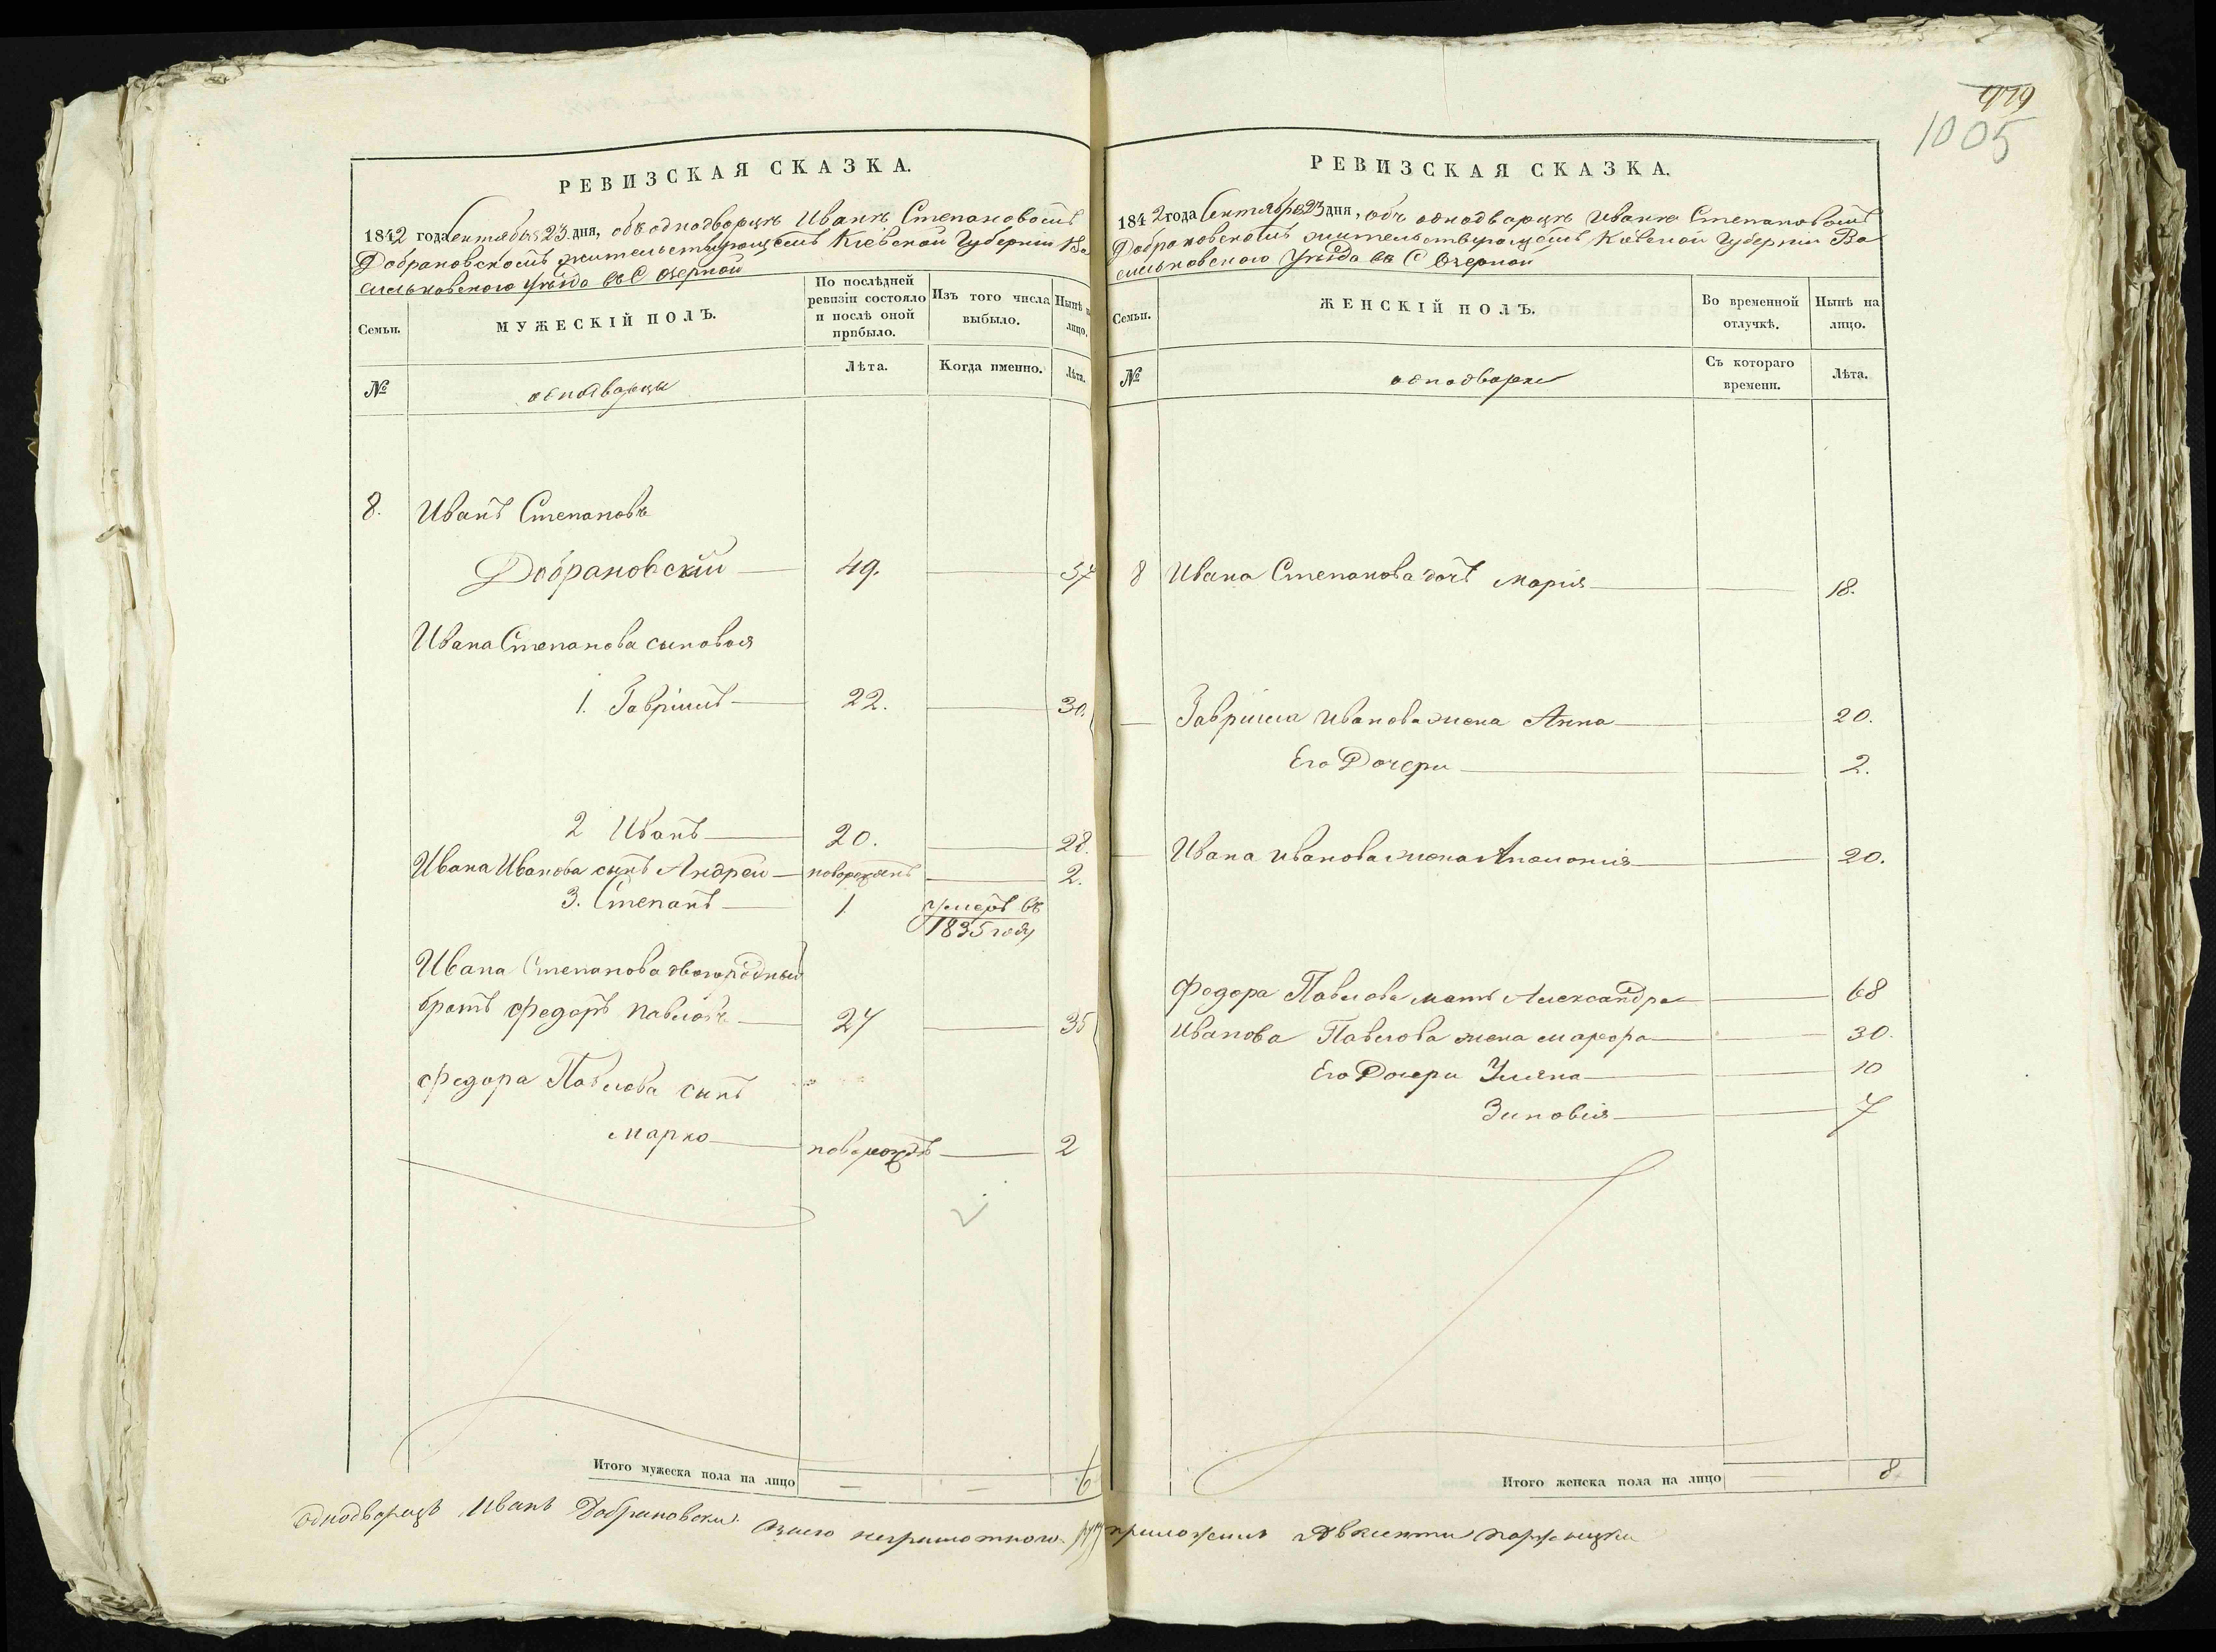 РЕВИЗСКАЯ СКАЗКА.
1842 года Сентября 23 дня, объ однодворцѣ Иванѣ Степановомъ
Добрановскомъ жительствующемъ Кіевской Губерніи Ва
сильковскаго Уѣзда въ С Озерной
Семьи.
МУЖЕСКІЙ ПОЛЪ.
По послѣдней
ревизіи состояло
и послѣ оной
прибыло.
Изъ того числа
выбыло.
Нынѣ на
лицо.
№
однодворцы
Лѣта.
Когда именно.
Лѣта.
8. Иванъ Степановъ
Добрановскій 49. 57
Ивана Степанова сыновья
1. Гавріилъ 22. 30.
2 Иванъ 20. 28.
Ивана Иванова сынъ Андрей новорожденъ 2.
3. Степанъ 1 умеръ въ
1835 году
Ивана Степанова двоюродный
братъ Федоръ Павловъ 27 35
Федора Павлова сынъ
Марко новорожд 2
Итого мужеска пола на лицо — — 6
979
1005
РЕВИЗСКАЯ СКАЗКА.
1842 года Сентября 23 дня, объ однодворцѣ Иванѣ Степановомъ
Добрановскомъ жительствующемъ Кіевской Губерніи Ва
сильковскаго Уѣзда въ С Озерной
Семьи.
ЖЕНСКІЙ ПОЛЪ.
Во временной
отлучкѣ.
Нынѣ на
лицо.
№
однодворки
Съ котораго
времени.
Лѣта.
8 Ивана Степанова дочь Марія 18.
Гавріила Иванова жена Анна 20.
Его Дочери 2.
Ивана Иванова жена Аполонія 20.
Федора Павлова мать Александра 68
Иванова Павлова жена Марфра 30.
Его Дочери Уляна 10
Зиновія 7
Итого женска пола на лицо 8
Однодворецъ Иванъ Добрановски. Озыго неграмотного руку приложилъ